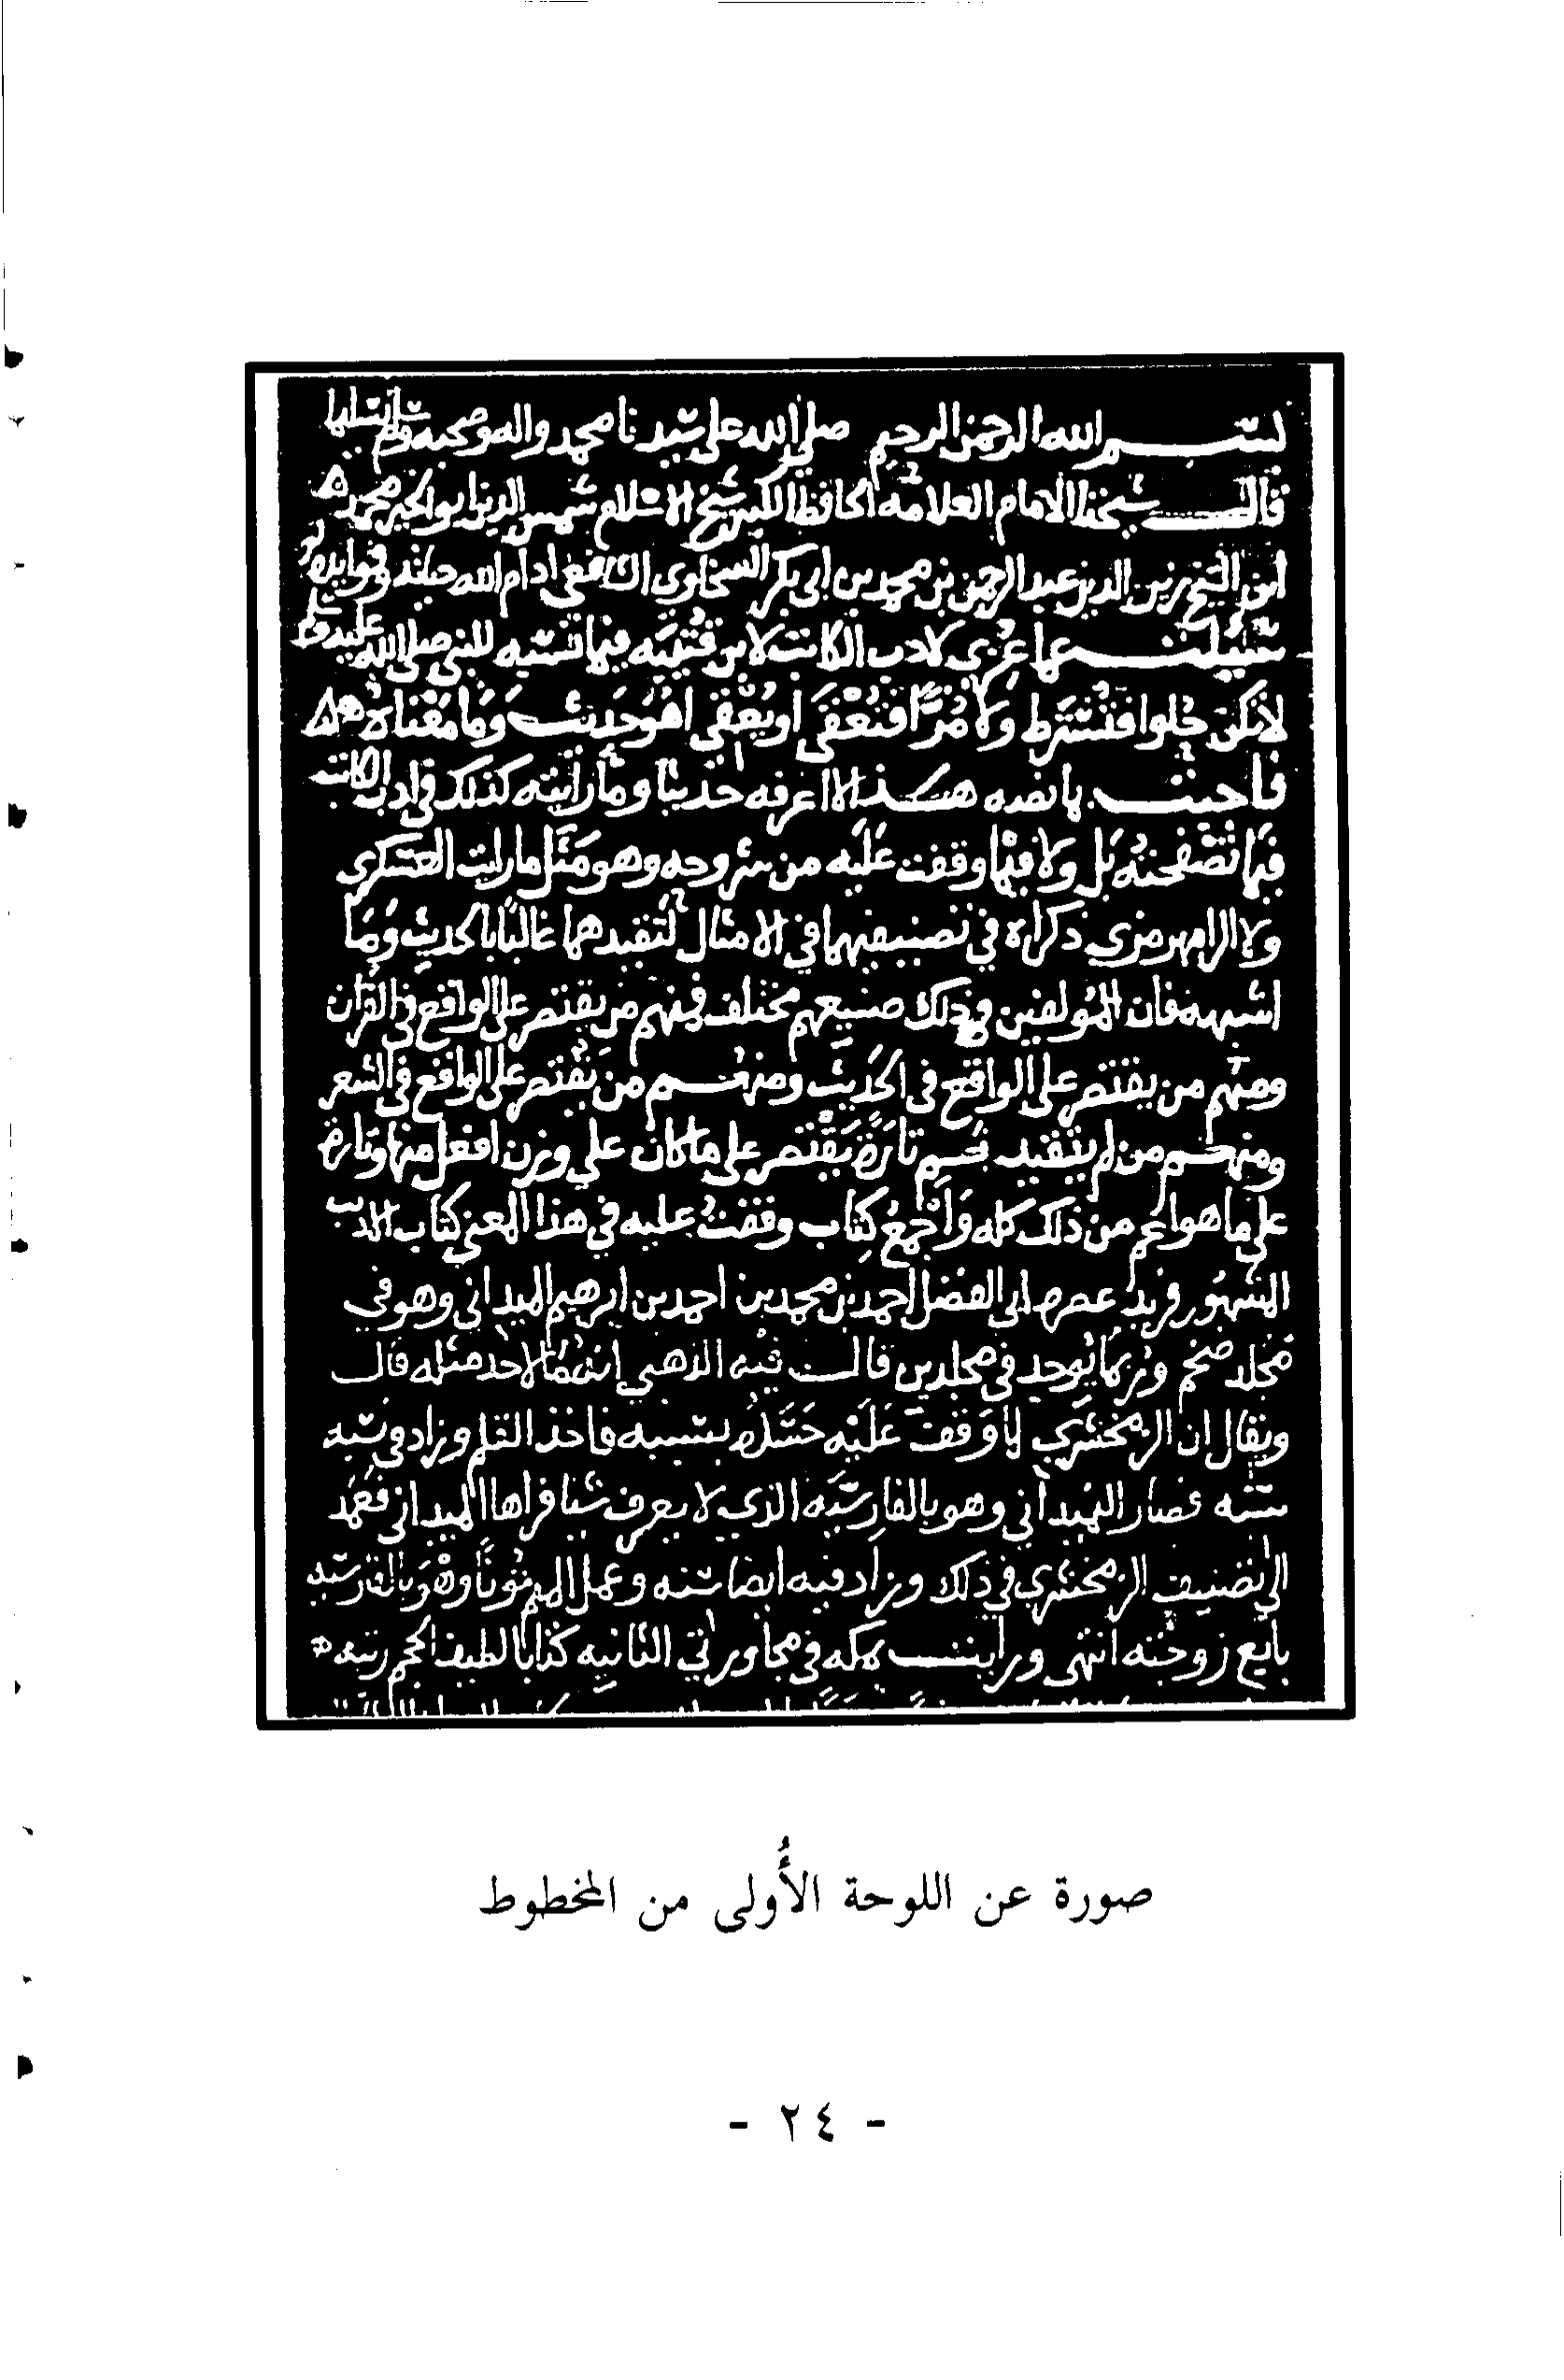 بسم الله الرحمن الرحيم صلى الله على سيدنا محمد واله وصحبه وسلم تسليما
قال شيخنا الامام العلامه الحافظ الكبير شيخ الاسلام شمس الدين ابو الخير محمد
ابن الشيخ زين الدين عبد الرحمن بن محمد بن ابى بكر السخاوي الشافعى ادام الله حياته وفوايده
سيلت عما عزى لادب الكاتب لابن قتيبه فيما نسبه للنبى صلى الله عليه
لا تكن حلوا فتسترط ولا مرًّا فتعقى او يعقى اهو حديث وما معناه
فاجبت بما نصه هكذا لا اعرفه حديثا وما رأيته كذلك في ادب الكاتب
فيما تصفحته بل ولا فيما وقفت عليه من شروحه وهو مثل ما رايت العسكري
ولا الرامهرمزي ذكراه في تصنيفيهما في الامثال لتقيدهما غالبًا بالحديث وما
اشبهه فان المؤلفين في ذلك صنيعهم مختلف فمنهم من يقتصر على الواقع في القرآن
ومنهم من يقتصر على الواقع في الحديث ومنهم من يقتصر على الواقع في الشعر
ومنهم من لم يتقيد بحسم تارة يقتصر على ما كان على وزن افعل منها وتارة
على ما هو اعم من ذلك كله وأجمع كتاب وقفت عليه في هذا المعنى كتاب الادب
المشهور فريد عصره ابى الفضل احمد بن محمد بن احمد بن ابرهيم الميدانى وهو في
مجلد ضخم وربما يوجد في مجلدين قال فيه الذهبي انه ما لاحد مثله قال
ويقال ان الزمخشري لما وقف عليه حسده بسببه فاخذ القلم وزاد في نسبه
سنه فصار النميدانى وهو بالفارسيه الذي لا يعرف شيا فراها الميدانى فعمد
الى تصنيف الزمخشري في ذلك وزاد فيه ايضا سنه وعمل الميم نونًا وهو بالفارسيه
بايع زوجته انتهى ورايت بمكه في مجاورتى الثانيه كتابا لطيف الحجم رتبه
صورة عن اللوحة الأُولى من المخطوط
- ٢٤ -